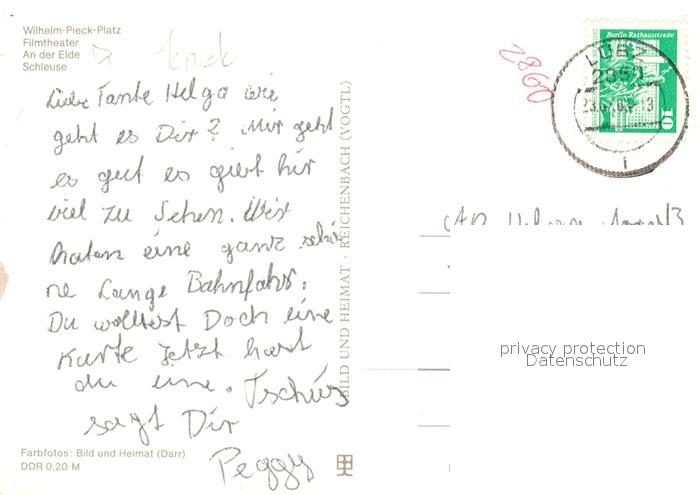 Wilhelm-Pieck-Platz
Filmtheater
An der Elde
Schleuse
Liebe Tante Helga wie
geht es Dir? Mir geht
es gut es giebt hir
viel zu Sehen. Wir
haten eine ganz schö
ne Lange Bahnfahr.
Du wolltest Doch eine
Karte jetzt hast
du eine. Tschüs
sagt Dir
Peggy
Farbfotos: Bild und Heimat (Darr)
DDR 0,20 M
BILD UND HEIMAT · REICHENBACH (VOGTL)
2860
Berlin Rathausstraße
10
LÜBZ
An
privacy protection
Datenschutz